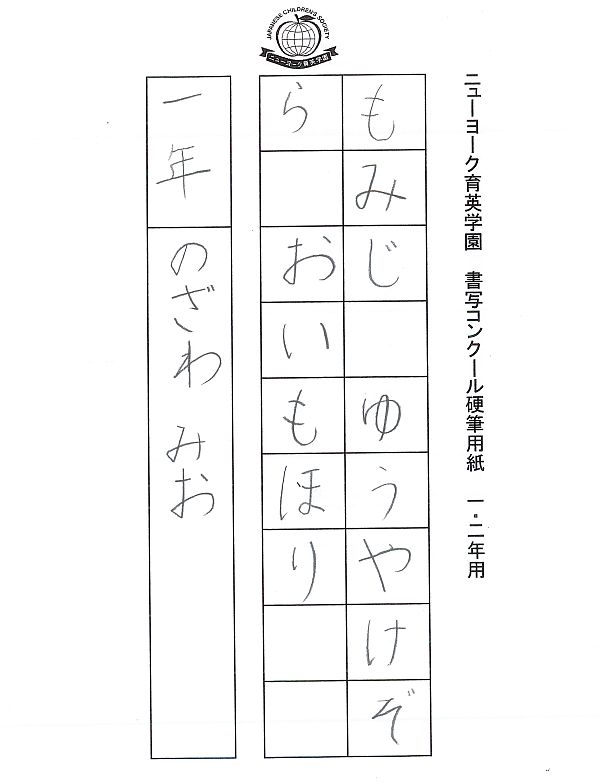 JAPANESE CHILDREN'S SOCIETY
ニューヨーク育英学園
ニューヨーク育英学園　書写コンクール硬筆用紙　一・二年用
もみじ　ゆうやけぞ
ら　おいもほり
一年　のざわ　みお